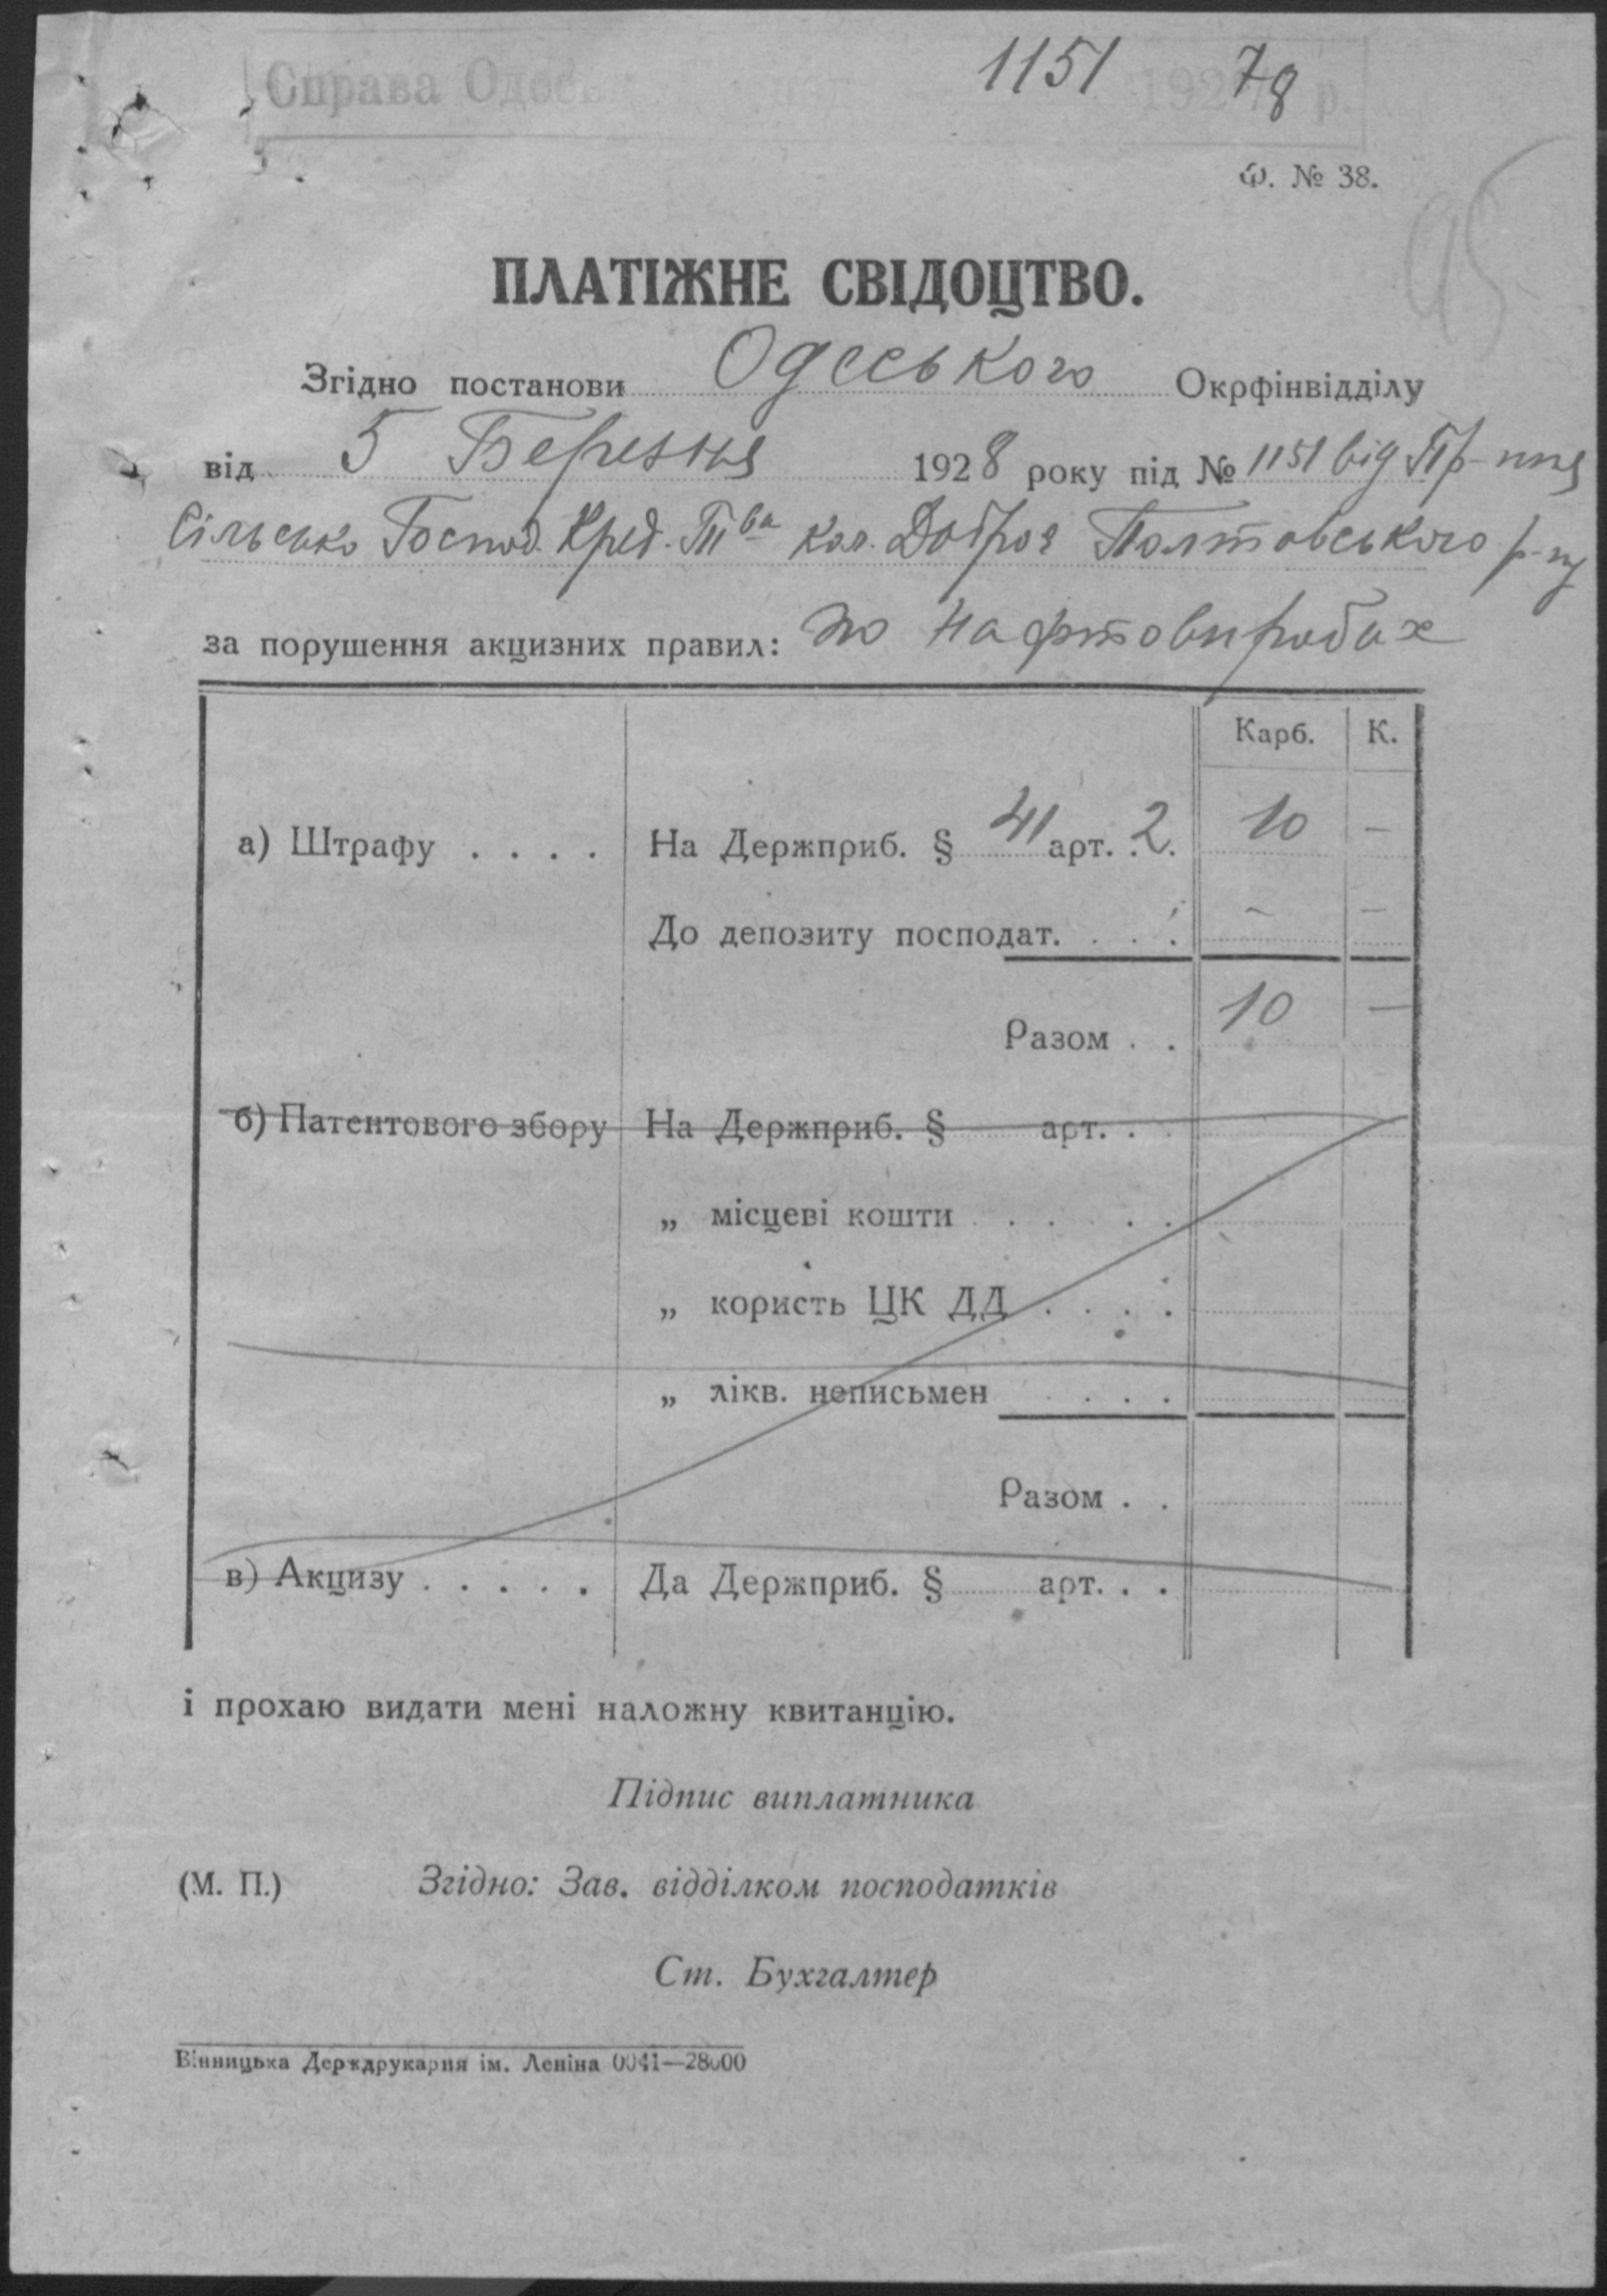 1151 78
Справа Одось 192 р.
Ф. № 38.
95
ПЛАТІЖНЕ СВІДОЦТВО.
Згідно постанови Одеського Окрфінвідділу
від 5 Березня 1928 року під № 1151 від Пр-ння
Сільсько Господ. Кред. Тва Кол. Доброя Полтовського р-ну
за порушення акцизних правил: по нафтовиробах
Карб. К.
а) Штрафу . . . . На Держприб. § 41 арт. 2. 10 —
До депозиту посподат. . . . — —
Разом . . 10 —
б) Патентового збору На Держприб. § арт. .
„ місцеві кошти . . . . .
„ користь ЦК ДД . . . .
„ лікв. неписьмен . . . .
Разом . .
в) Акцизу . . . . . Да Держприб. § арт. . .
і прохаю видати мені наложну квитанцію.
Підпис виплатника
(М. П.) Згідно: Зав. відділком посподатків
Ст. Бухгалтер
Вінницька Держдрукарня ім. Леніна 0041—28000